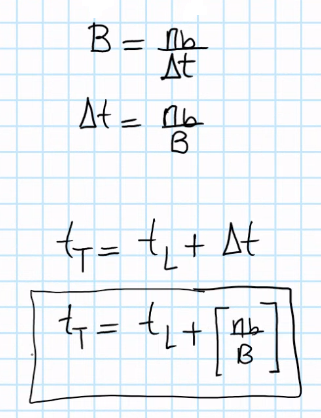 B = nb/Δt
Δt = nb/B
t_T = t_L + Δt
t_T = t_L + [nb/B]